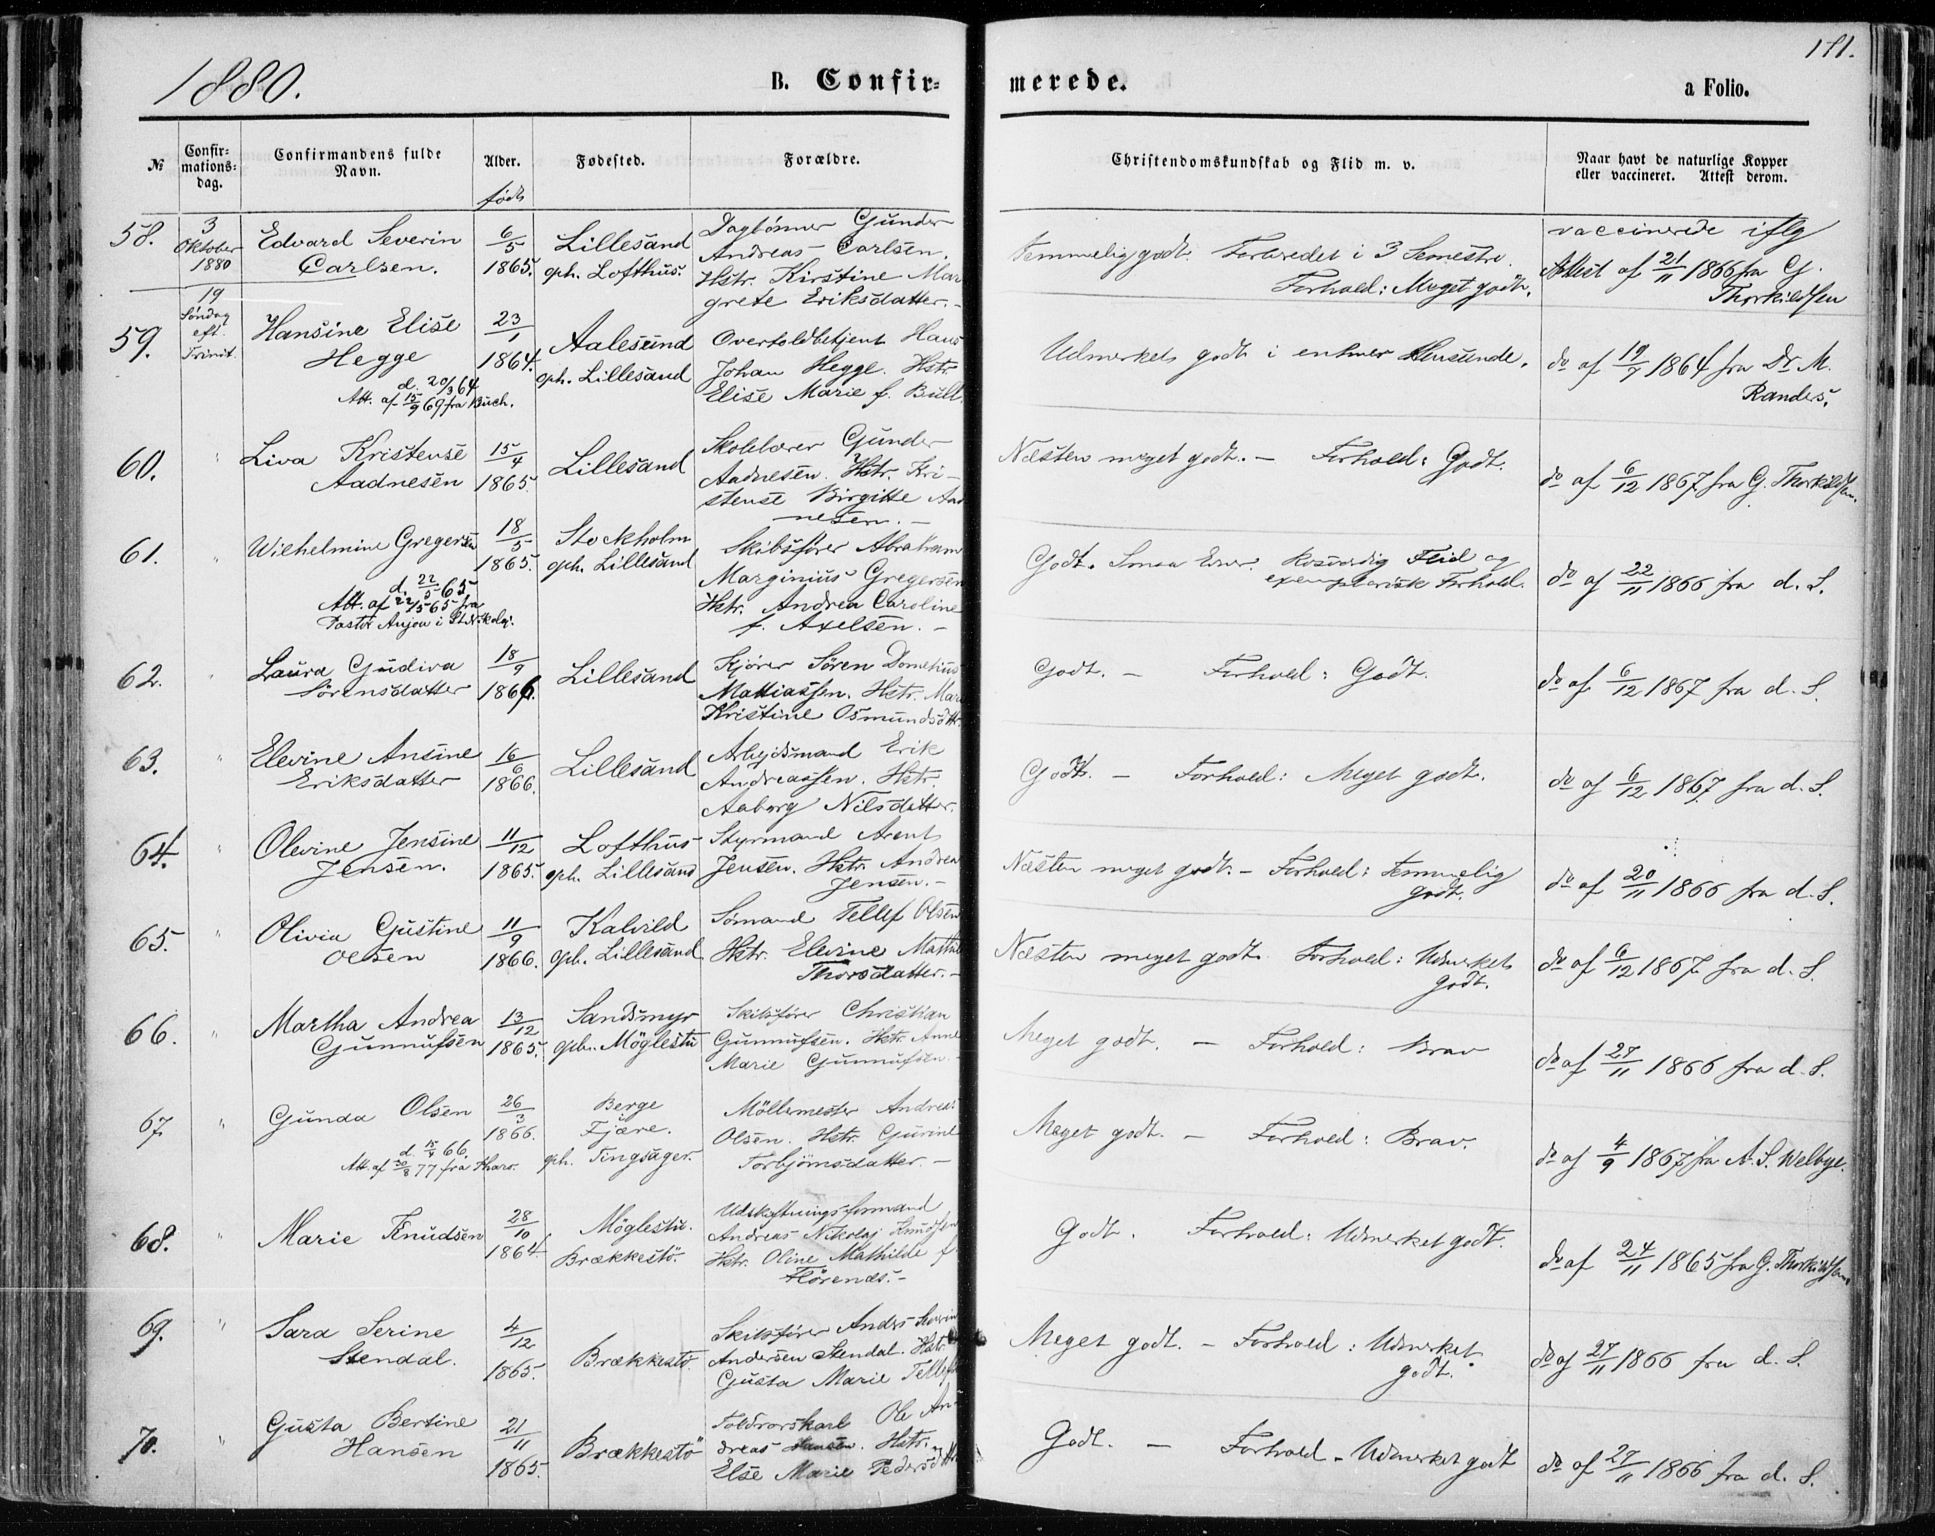 1880.
B. Confir=
merede.
a Folio.
181.
№
Confir=
mations=
dag.
Confirmandens fulde
Navn.
Alder.
født
Fødested.
Forældre.
Christendomskundskab og Flid m. v.
Naar havt de naturlige Kopper
eller vaccineret. Attest derom.
58.
3
Oktober
1880
19
Søndag
eft.
Trinit.
Edvard Severin
Carlsen.
6/5
1865.
Lillesand
oph. Lofthus.
Gunder
Andreas Carlsen.
Hstr. Kirstine Mar
grete Eriksdatter. -
Temmelig godt. Forberedet i 3 Semestre.
Forhold: Meget godt.
vaccinerede iflg
Attest af 21/11 1866 fra G.
Thorkildsen
59.
Hansine Elise
Hegge
d. 20/3 64
Att. af 15/9 69 fra Buch.
23/1
1864.
Aalesund
oph. Lillesand
Overtoldbetjent Hans
Johan Hegge. Hstr.
Elise Marie f. Bull.
Udmerket godt i enhver Henseende.
do af 19/7 1864 fra Dr. M.
Randers.
60.
"
Liva Kristense
Aadnesen
15/4
1865.
Lillesand
Skolelærer Gunder
Aadnesen. Hstr. Kri-
stense Birgitte Aad
nesen. -
Næsten meget godt. - Forhold: Godt.
do af 6/12 1867 fra G. Thorkildsen.
61.
"
Wilhelmine Gregersen
d. 22/5 65
Att. af 22/5 65 fra
Pastor Anjou i Stockholm.
18/5
1865.
Stockholm
oph. Lillesand
Skibsfører Abraham
Marginius Gregersen
Hstr. Andrea Caroline
f. Axelsen. -
Godt. Smaa Evner. Rosværdig Flid og
exemplarisk Forhold.
do af 22/11 1866 fra d. S.
62.
"
Laura Gudiva
Sørensdatter
18/9
1866.
Lillesand
Kjører Søren Dometius
Mattiassen. Hstr. Mar
Kristine Osmundsdtr.
Godt. - Forhold: Godt.
do af 6/12 1867 fra d. S.
63.
"
Elevine Ansine
Eriksdatter
16/6
1866.
Lillesand
Arbejdsmand Erik
Andreassen. Hstr.
Aaborg Nilsdatter.
Godt. - Forhold: Meget godt.
do af 6/12 1867 fra d. S.
64.
"
Olevine Jensine
Jensen.
11/12
1865.
Lofthus
oph. Lillesand
Styrmand Arent
Jensen. Hstr. Andrea
Jensen. -
Næsten meget godt. - Forhold: Temmelig
godt.
do af 20/11 1866 fra d. S.
65.
"
Olivia Gustine
Olsen
11/9
1866.
Kalvild
oph. Lillesand
Sømand Tellef Olsen
Hstr. Elevine Mathil
Thorsdatter. -
Næsten meget godt. Forhold: Udmerket
godt.
do af 6/12 1867 fra d. S.
66.
"
Martha Andrea
Gunnufsen
13/12
1865.
Sandsmyr
oph. Møglestu
Skibsfører Christian
Gunnufsen. Hstr. Anne
Marie Gunnufsen -
Meget godt. - Forhold: Brav
do af 27/11 1866 fra d. S.
67.
"
Gunda Olsen
d. 15/4 66.
Att. af 30/8 77 fra Thars.
26/3
1866.
Berge
i
Fjære.
oph. Tingsager.
Møllemester Andreas
Olsen. Hstr. Gurine
Torbjørnsdatter. -
Meget godt. - Forhold: Brav.
do af 4/9 1867 fra A. S. Welbye.
68.
"
Marie Knudsen
28/10
1864.
Møglestu.
Brækkestø.
Udskiftningsformand
Andreas Nikolaj Knudsen
Hstr. Oline Mathilde f.
Hørends. -
Godt. Forhold: Udmerket godt.
do af 24/11 1865 fra G. Thorkildsen
69.
"
Sara Serine
Stendal.
4/12
1865.
Brækkestø
Skibsfører Anders Severin
Andersen Stendal. Hstr.
Gusta Marie Tellefs
Meget godt. - Forhold: Udmerket
godt.
do af 27/11 1866 fra d. S.
70.
"
Gusta Bertine
Hansen
21/11
1865.
Brækkestø
Toldrorskarl Ole An-
dreas Hansen. Hstr.
Else Marie Pedersdtr.
Godt. - Forhold - Udmerket godt
do af 27/11 1866 fra d. S.